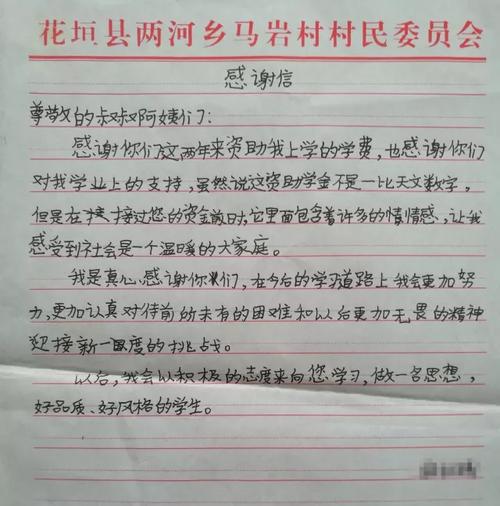 花垣县两河乡马岩村村民委员会
感谢信
尊敬的叔叔阿姨们：
感谢你们这两年来资助我上学的学费，也感谢你们
对我学业上的支持，虽然说这资助学金不是一比天文数字。
但是在接过您的资金前时，它里面包含着许多的情情感，让我
感受到社会是一个温暖的大家庭。
我是真心感谢你们，在今后的学习道路上我会更加努
力，更加认真对待前所未有的困难和以后更加无畏的精神
迎接新一国度的挑战。
以后，我会以积极的志度来向您学习，做一名思想，
好品质、好风格的学生。